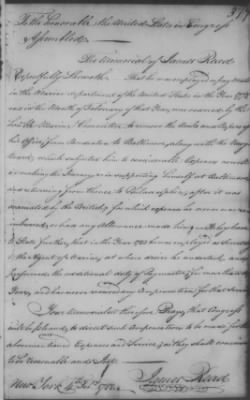 To the Honorable the United States in Congress
Assembled.
The Memorial of James Read
Respectfully Sheweth. That he was employed as pay master
in the Marine department of the United States in the Year
was in the Month of February of that Year, was ordered by the
Marine Committee to remove the Books and Papers of
his Office from Philadelphia to Baltimore, along with the Navy
Board, which subjected him to considerable Expence, as well
in making the Journey as in supporting himself at Baltimore
and returning from thence to Philadelphia, after it was
evacuated by the British, for which expence he never was
reimbursed, or had any Allowance made him. He begs leave
to State further, that in the Year he was employed as Secretary
to the Agent of Marine, at whose desire he undertook and
performed the additional duty of Paymaster for more than a
Year, and has never received any Compensation for that Service.
Your Memorialist therefore Prays, that Congress
will be pleased to direct such Compensation to be made for the
abovementioned Expences and Services, as they shall consider
to be reasonable and
New York James Read